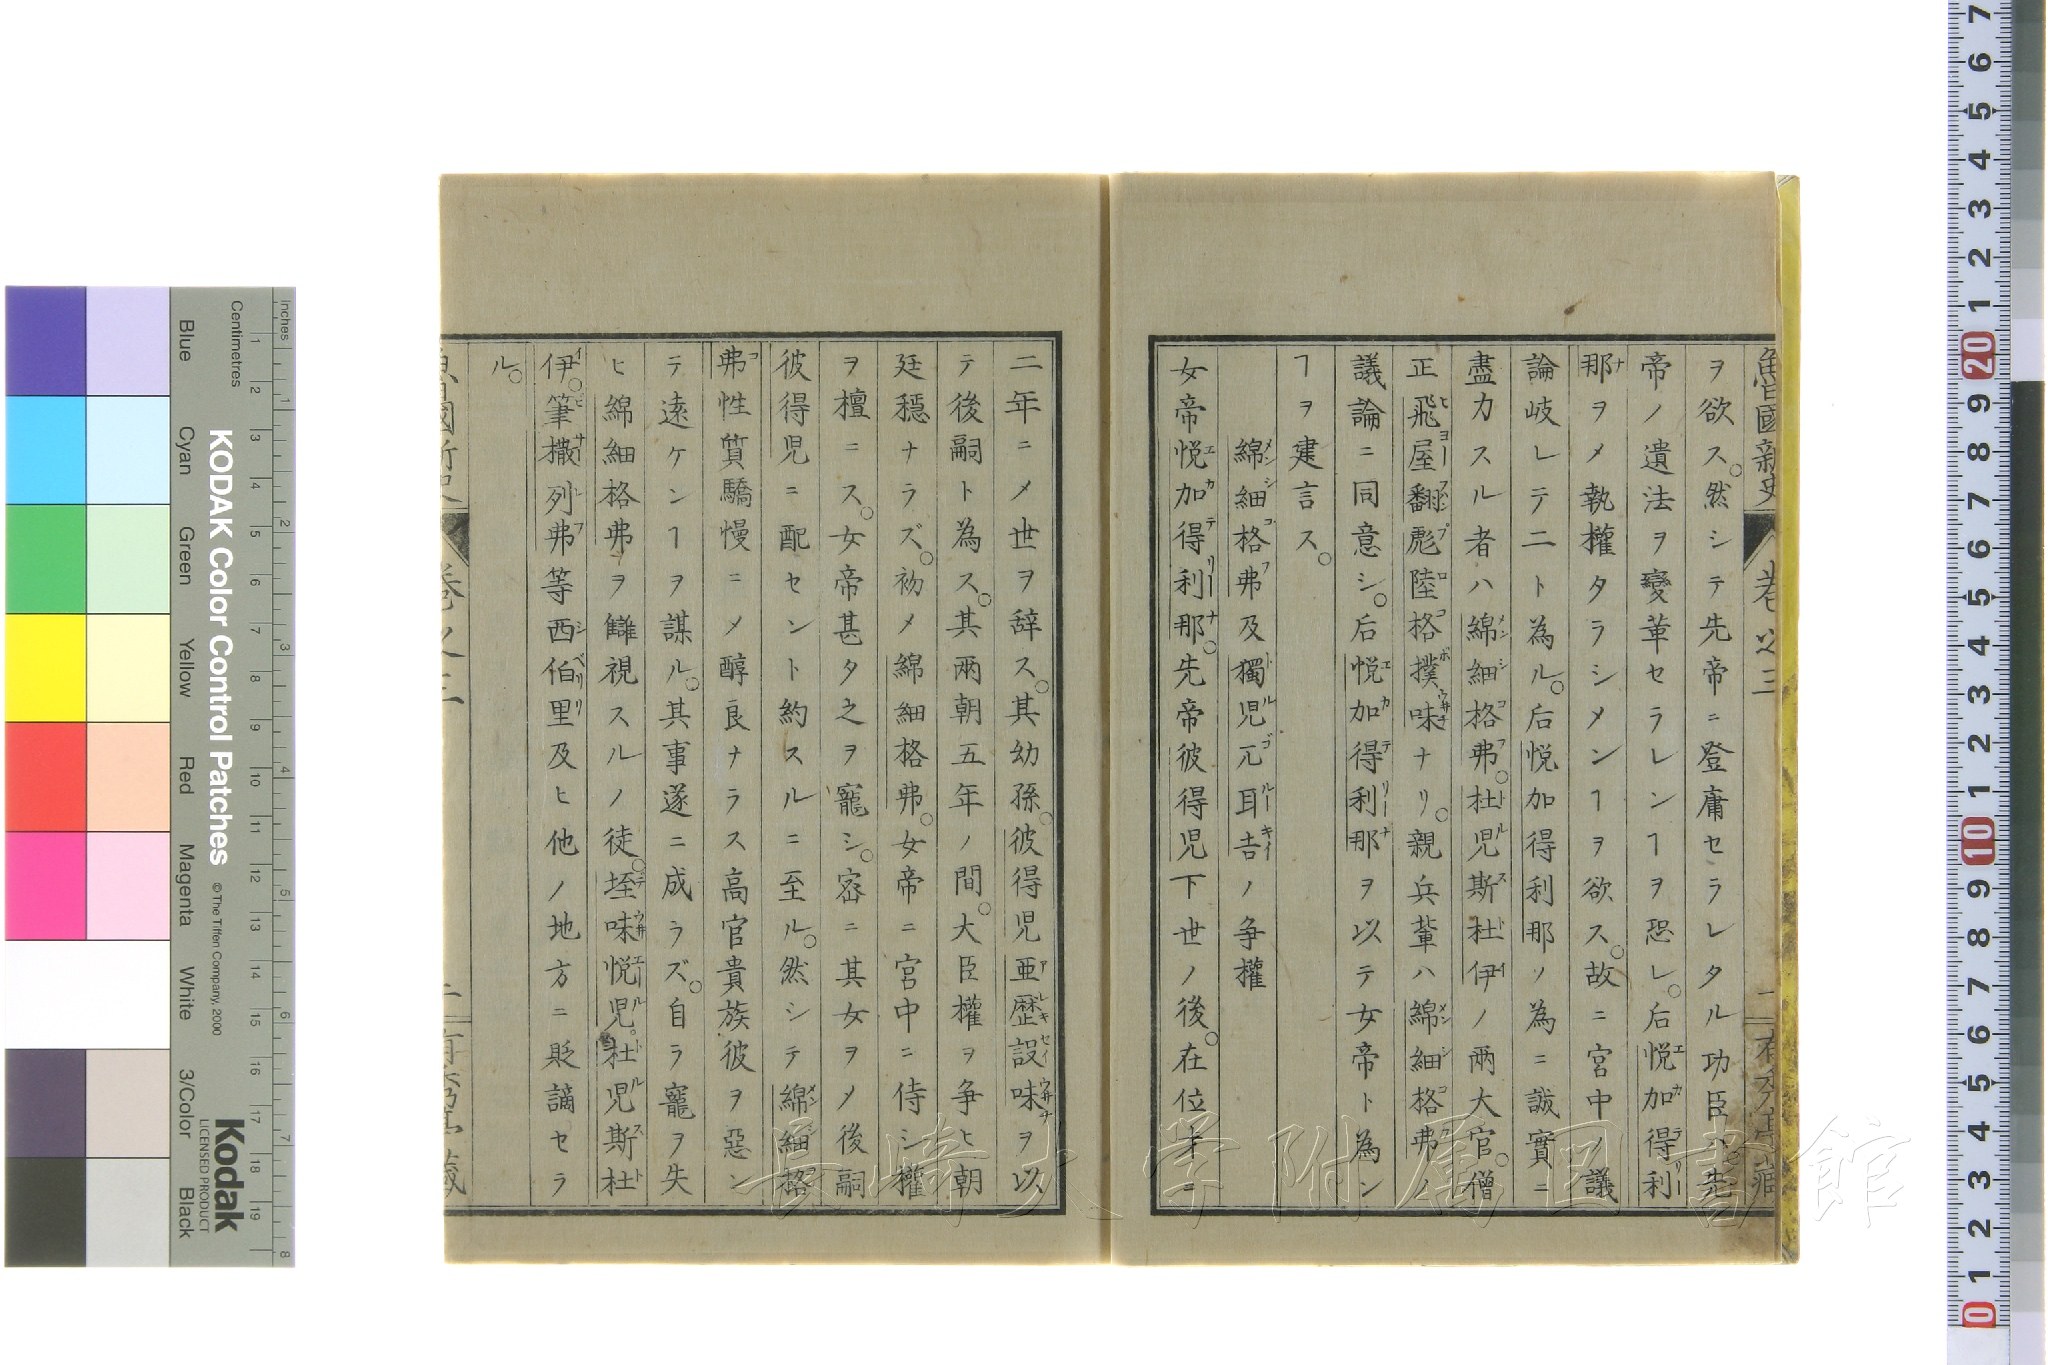 魯國新史 卷之三
ヲ欲ス。然シテ先帝ニ登庸セラレタル功臣ハ。先
帝ノ遺法ヲ變革セラレンヿヲ恐レ。后悦加得利
那ヲメ執權タラシメンヿヲ欲ス。故ニ宮中ノ議
論岐レテ二ト為ル。后悦加得利那ノ為ニ誠實ニ
盡力スル者ハ綿細格弗。杜児斯杜伊ノ兩大官。僧
正飛屋翻彪陸格撲味ナリ。親兵輩ハ綿細格弗ノ
議論ニ同意シ。后悦加得利那ヲ以テ女帝ト為ン
ヿヲ建言ス。
綿細格弗及獨児兀耳吉ノ争權
女帝悦加得利那。先帝彼得児下世ノ後。在位才ニ
二年ニメ世ヲ辞ス。其幼孫。彼得児亜歴設味ヲ以
テ後嗣ト為ス。其兩朝五年ノ間。大臣權ヲ争ヒ朝
廷穏ナラズ。初メ綿細格弗。女帝ニ宮中ニ侍シ權
ヲ檀ニス。女帝甚タ之ヲ寵シ。密ニ其女ヲメ後嗣
彼得児ニ配セント約スルニ至ル。然シテ綿細格
弗性質驕慢ニメ醇良ナラス高官貴族彼ヲ惡ン
テ遠ケンヿヲ謀ル。其事遂ニ成ラズ。自ラ寵ヲ失
ヒ綿細格弗ヲ讎視スルノ徒。垤味悦児。杜児斯杜
伊。筆撒列弗等西伯里及ヒ他ノ地方ニ貶謫セラ
ル。
卷之三
長崎大学附属図書館
KODAK Color Control Patches
© The Tiffen Company, 2000
Kodak
LICENSED PRODUCT
Inches
Centimetres
Blue
Cyan
Green
Yellow
Red
Magenta
White
3/Color
Black